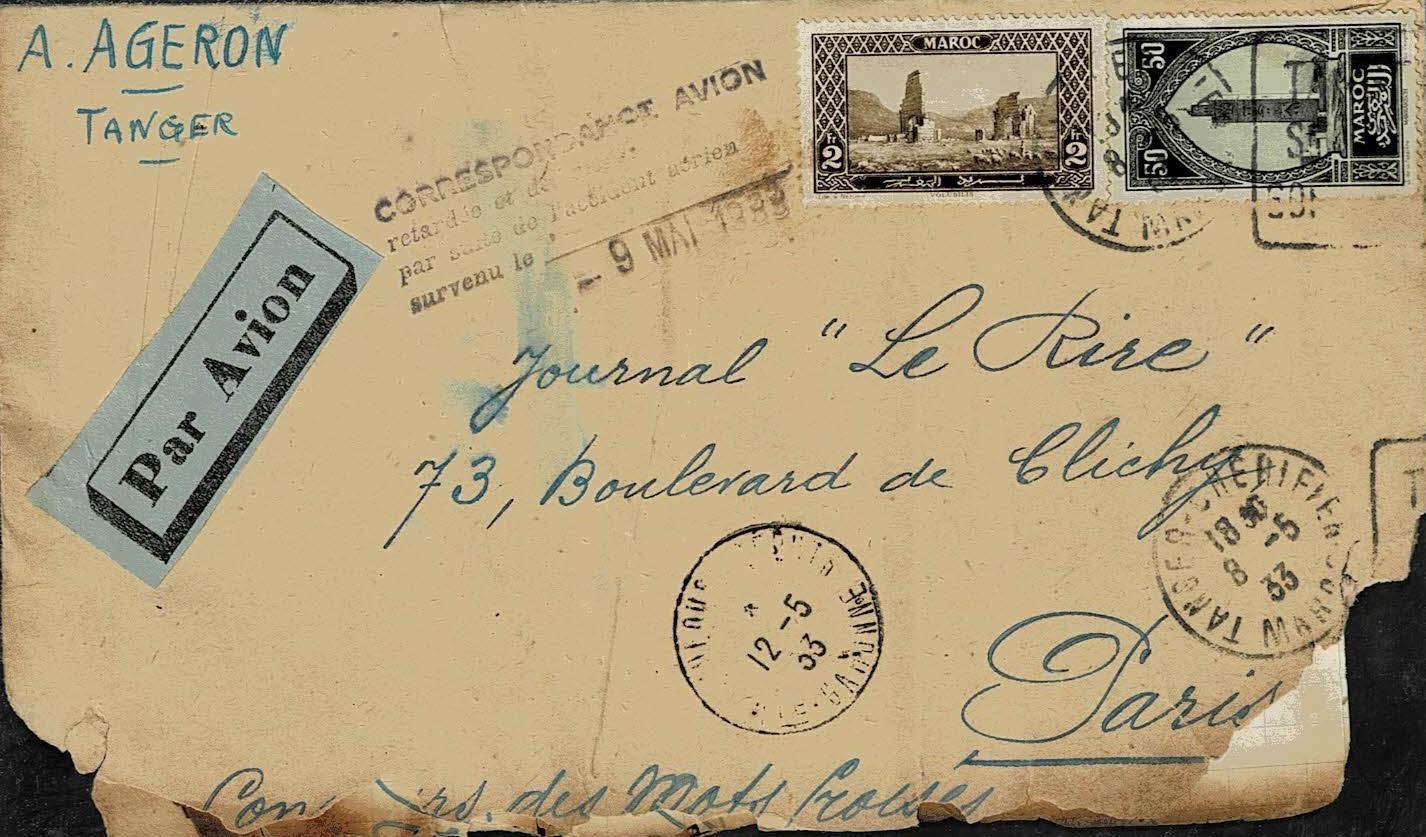 A. AGERON
TANGER
CORRESPONDANCE AVION
retardée et
par suite de l'accident aérien
survenu le
- 9 MAI 1933
MAROC
2 Fr
2 Fr
VOLUBILIS
50
50
MAROC
Par Avion
Journal "Le Rire"
73, Boulevard de Clichy
Paris
des Mots Croisés
TANGER-CHERIFIEN
18 30
8 - 5
33
MAROC
12 - 5
33
HTE-GARONNE